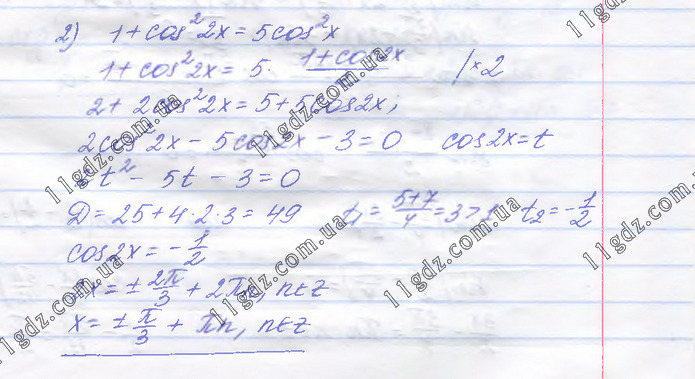 2) 1+cos²2x = 5cos²x
1+cos²2x = 5· (1+cos2x)/2 |×2
2+2cos²2x = 5+5cos2x;
2cos²2x − 5cos2x − 3 = 0 cos2x = t
2t² − 5t − 3 = 0
D = 25+4·2·3 = 49 t₁ = (5+7)/4 = 3 > 1 t₂ = −1/2
cos2x = −1/2
2x = ± 2π/3 + 2πn, n∈Z
x = ± π/3 + πn, n∈Z
11gdz.com.ua
11gdz.com.ua
11gdz.com.ua
11gdz.com.ua
11gdz.com.ua
11gdz.com.ua
11gdz.com.ua